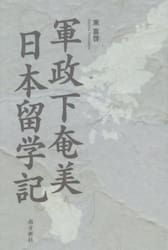 軍政下奄美
日本留学記
南方新社